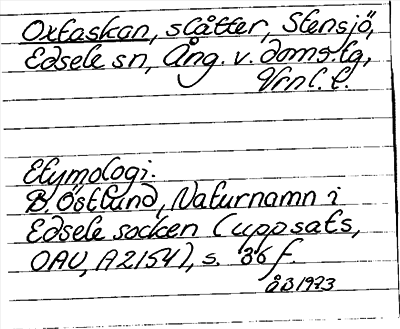 Oxtaskan, slåtter, Stensjö,
Edsele sn, Ång. v. doms.tg,
Vrnl. l.
Etymologi:
B. Östlund, Naturnamn i
Edsele socken (uppsats,
OAU, A2154), s. 36 f.
ÅB 1973